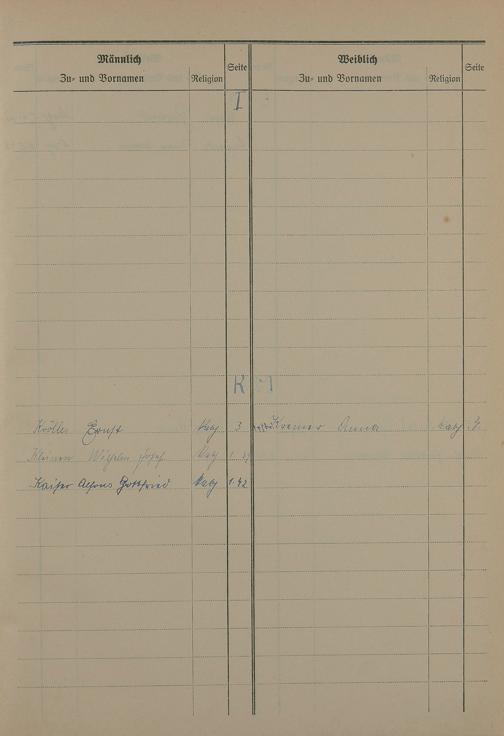 Männlich
Zu- und Vornamen
Religion
Seite
Weiblich
Zu- und Vornamen
Religion
Seite
I
K
Ernst kath 3
Kremer Anna kath
Wilhelm Josef kath
Kaiser Alfons Gottfried kath 142